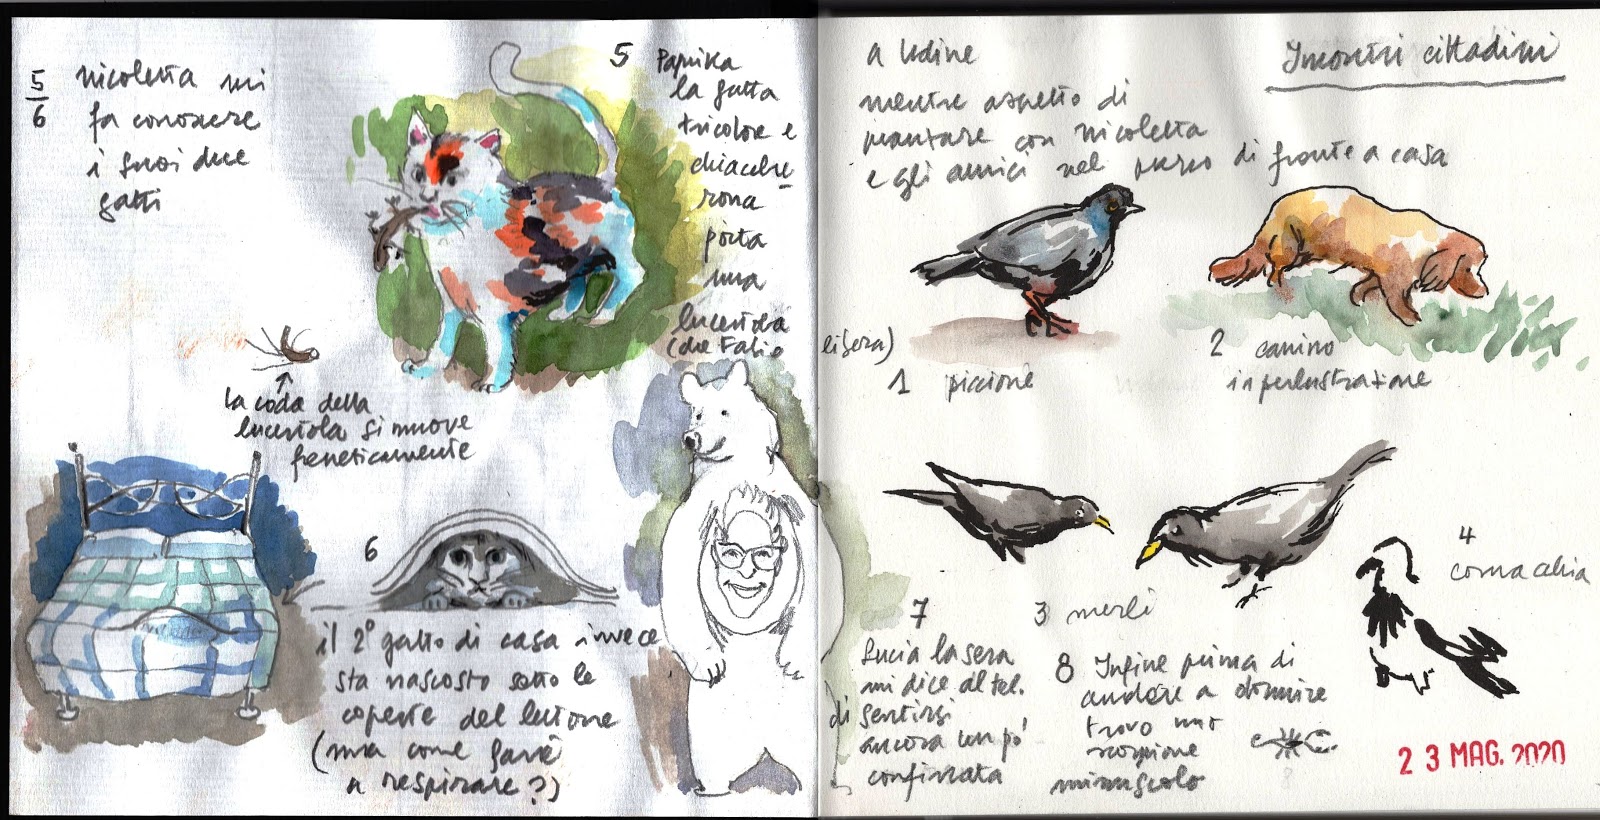 5/6
nicoletta mi
fa conoscere
i suoi due
gatti
5
Paprika
la gatta
tricolore e
chiacchie-
rona
porta
una
lucertola
(che Fabio
libera)
La coda della
lucertola si muove
freneticamente
6
il 2° gatto di casa invece
sta nascosto sotto le
coperte del lettone
(ma come farà
a respirare?)
a Udine
mentre aspetto di
pranzare con nicoletta
e gli amici nel parco di fronte a casa
Incontri cittadini
1 piccione
2 canino
in perlustrazione
3 merli
4
cornacchia
7
Lucia la sera
mi dice al tel.
di sentirsi
ancora un po'
confinata
8 Infine prima di
andare a dormire
trovo uno
scorpione
minuscolo
23 MAG. 2020